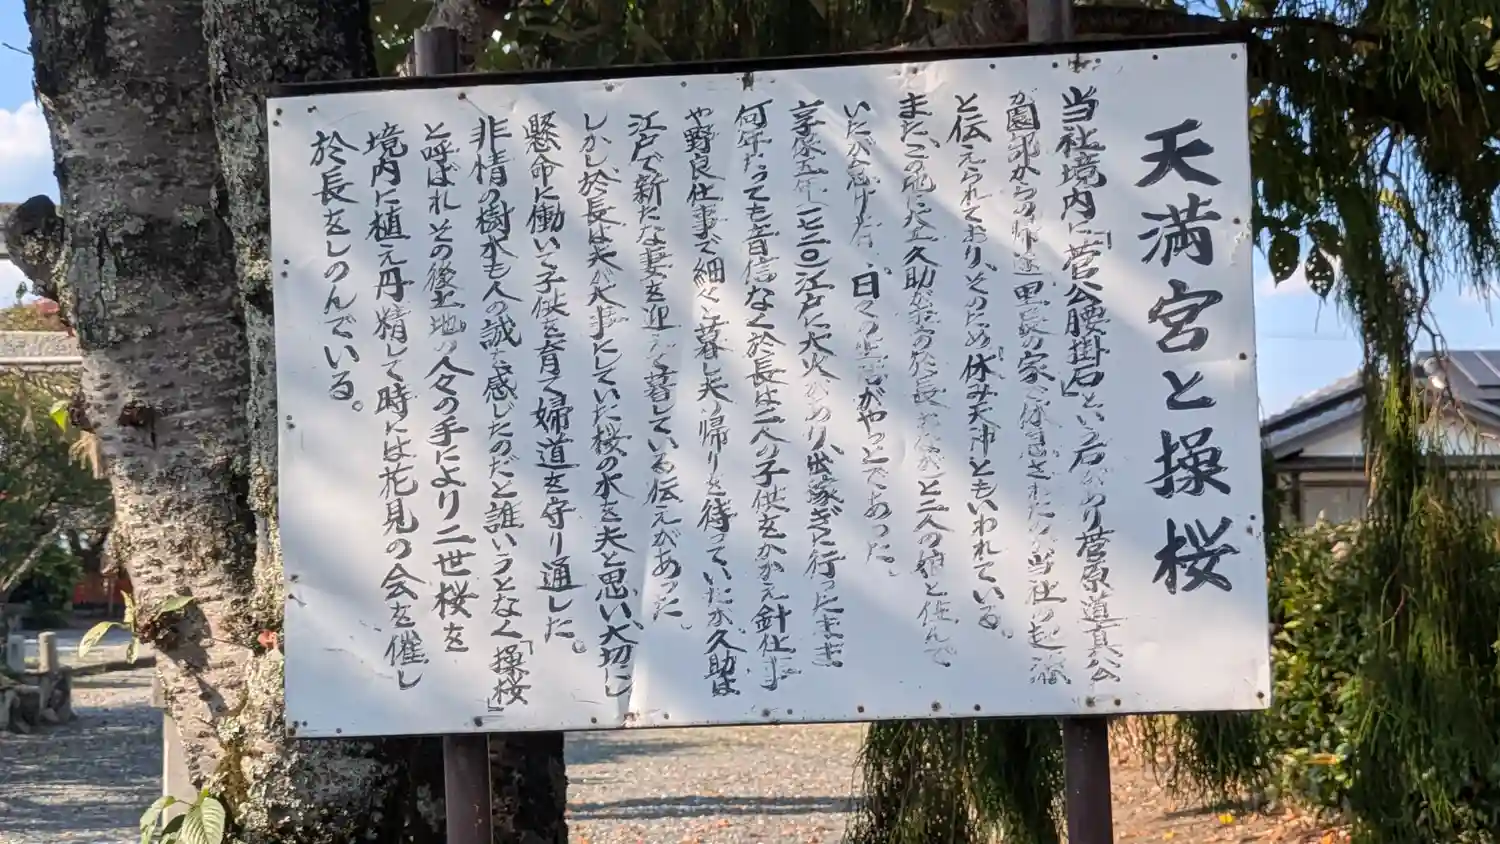 天満宮と操桜
当社境内に「菅公腰掛石」という石があり菅原道真公
が園 からの帰途里長の家で休息されたのが当社の起源
と伝えられており、そのため「休み天神」ともいわれている。
また、この地に大工久助が妻の於長 と二人の娘と住んで
いたが怠けた 、日々の生活がやっとであった。
享保五年(一七二〇)江戸に大火があり、出稼ぎに行ったまま
何年たっても音信なく於長は二人の子供をかかえ針仕事
や野良仕事で細々と暮し夫の帰りを待っていたが、久助は
江戸で新たな妻を迎えて暮している伝えがあった。
しかし於長は夫が大事にしていた桜の木を夫と思い、大切にし
懸命に働いて子供を育て婦道を守り通した。
非情の樹木も人の誠を感じたのだと誰いうとなく「操桜」
と呼ばれその後土地の人々の手により二世桜を
境内に植え丹精して時には花見の会を催し
於長をしのんでいる。